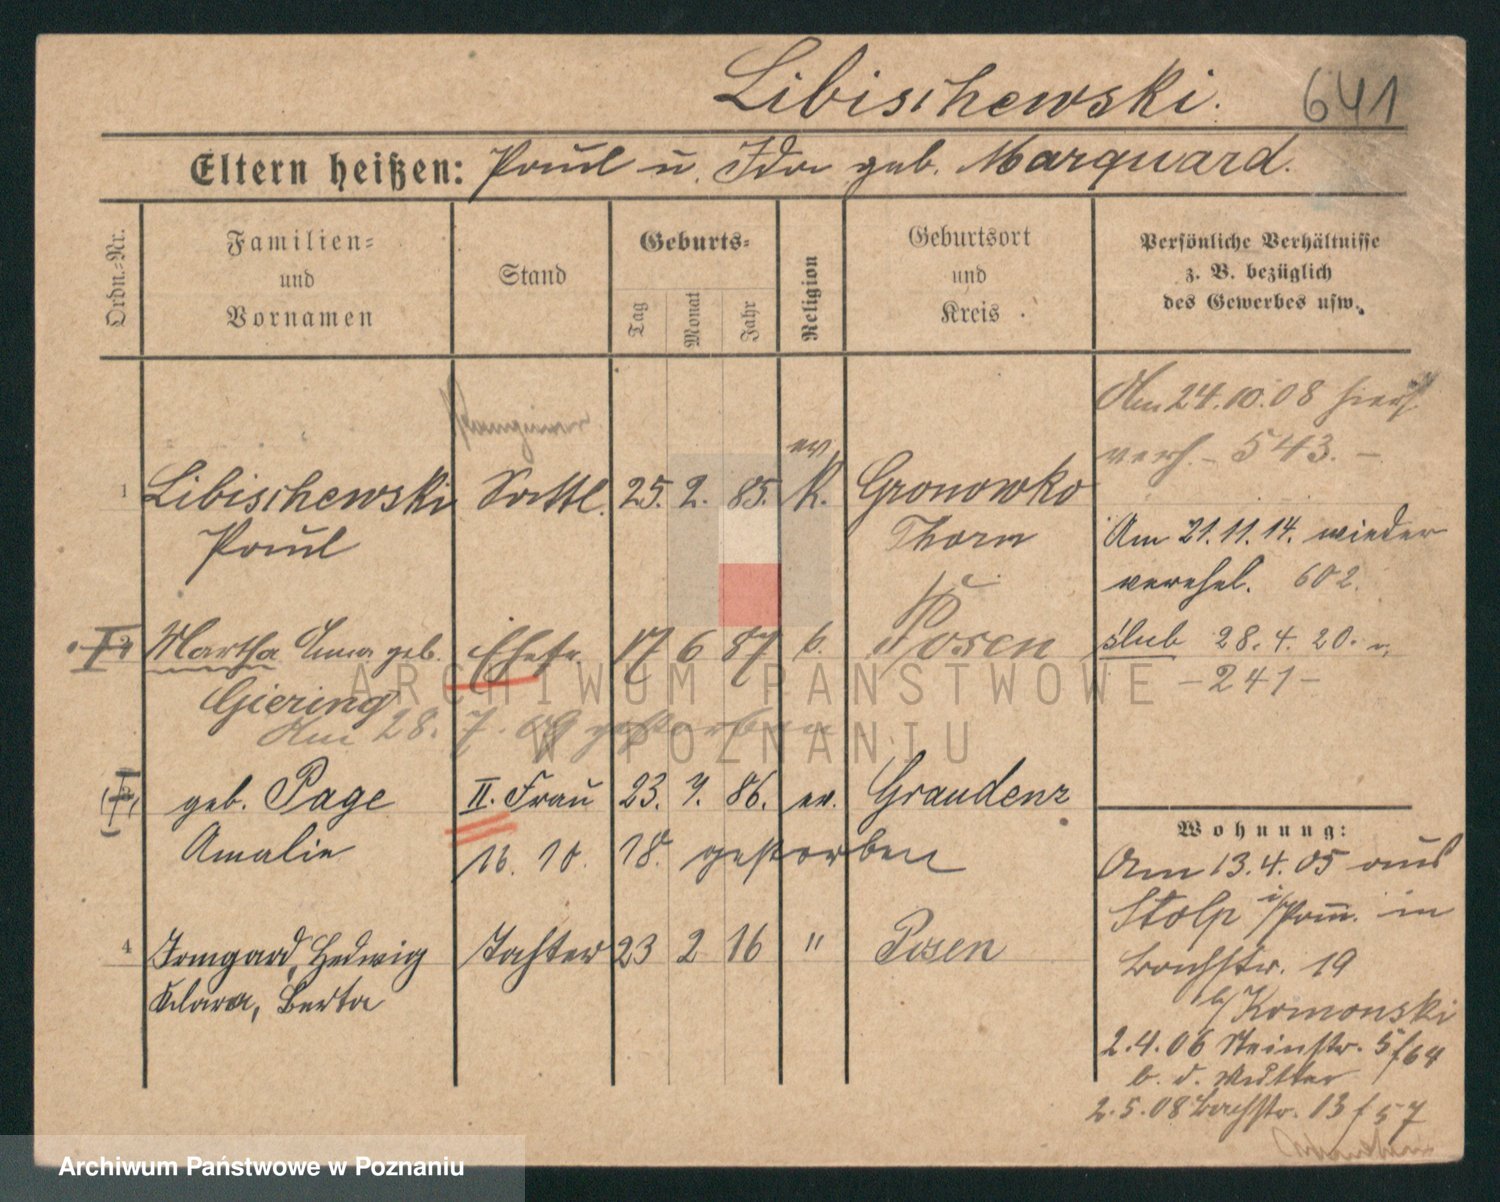 Libischewski. 641
Eltern heißen: Paul u. Ida geb. Marquard.
Ordn.-Nr.
Familien-
und
Vornamen
Stand
Geburts-
Tag
Monat
Jahr
Religion
Geburtsort
und
Kreis
Persönliche Verhältnisse
z. B. bezüglich
des Gewerbes usw.
Am 24.10.08 hier
verh. - 543. -
ev.
1 Libischewski Sattl. 25. 2. 85. K. Gronowko
Paul Thorn
Am 21.11.14. wieder
verehel. 602.
Martha Anna geb. Ehefr. 17 6 87 k. Posen
Giering
Am 28. 7. 09 gestorben
ślub 28.4.20.
- 241 -
geb. Page II. Frau 23. 7. 86. ev. Graudenz
Amalie 16. 10. 18. gestorben
4 Irmgard, Hedwig Tochter 23 2 16 " Posen
Klara, Berta
Wohnung:
Am 13.4.05 aus
Stolp i/Pom. in
Bachstr. 19
b/Komonski
2.4.06 Steinstr. 5 f 64
b. d. Mutter
2.5.08 Bachstr. 13 f 57
ARCHIWUM PAŃSTWOWE
W POZNANIU
Archiwum Państwowe w Poznaniu